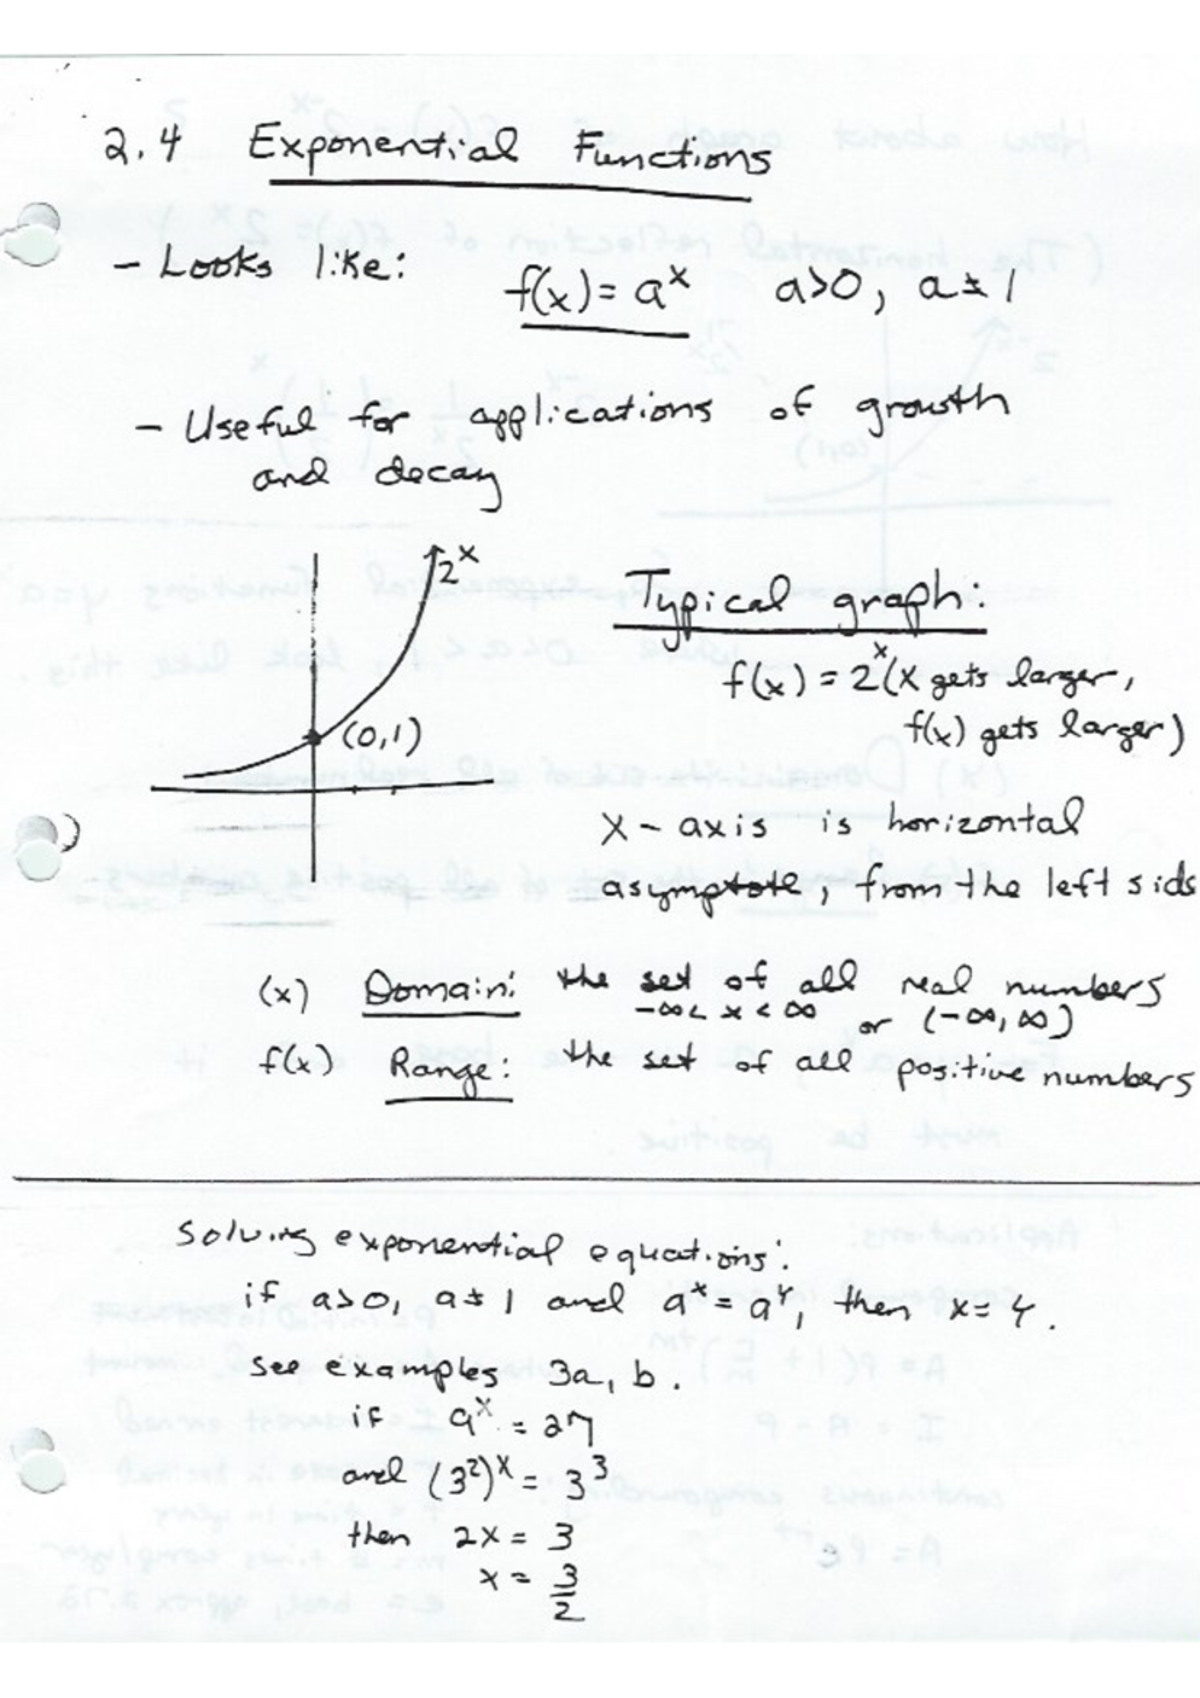 2.4 Exponential Functions
- Looks like: f(x) = aˣ a>0, a ≠ 1
- Useful for applications of growth
and decay
2ˣ
(0,1)
Typical graph:
f(x) = 2ˣ (x gets larger,
f(x) gets larger)
X-axis is horizontal
asymptote, from the left side
(x) Domain: the set of all real numbers
-∞ < x < ∞ or (-∞, ∞)
f(x) Range: the set of all positive numbers
Solving exponential equations:
if a>0, a ≠ 1 and aˣ = aʸ, then x = y.
see examples 3a, b.
if 9ˣ = 27
and (3²)ˣ = 3³
then 2x = 3
x = 3/2